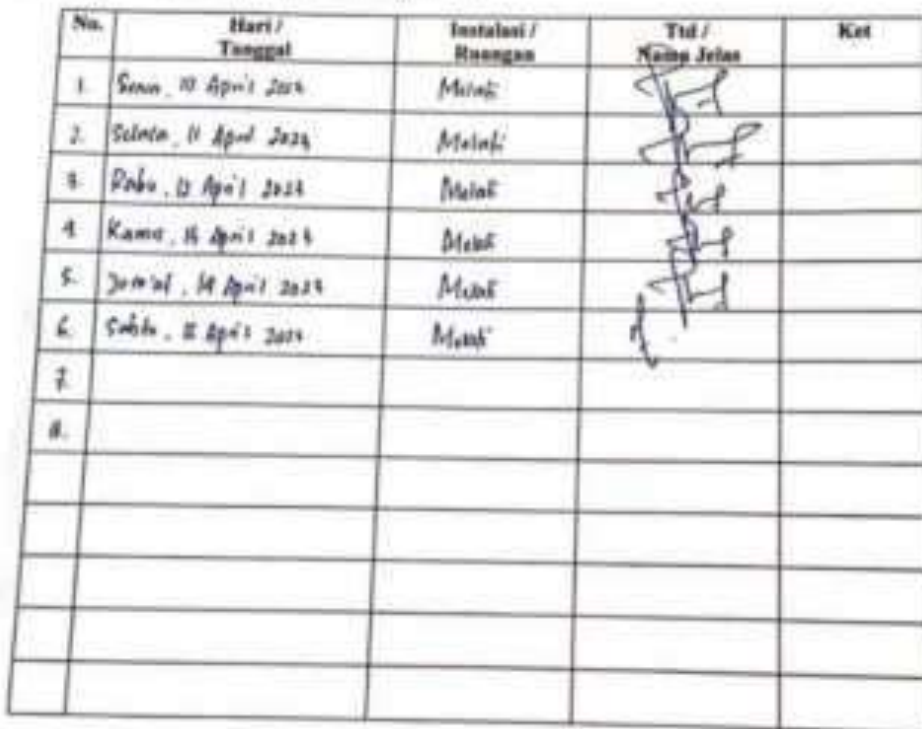 No. Hari / Tanggal Instalasi / Ruangan Ttd / Nama Jelas Ket
1. Senin, 10 April Melati
2. Selasa, 11 April Melati
3. Rabu, 12 April Melati
4. Kamis, April Melati
5. Jum'at, 14 April Melati
6. Sabtu, 15 April Melati
7.
8.